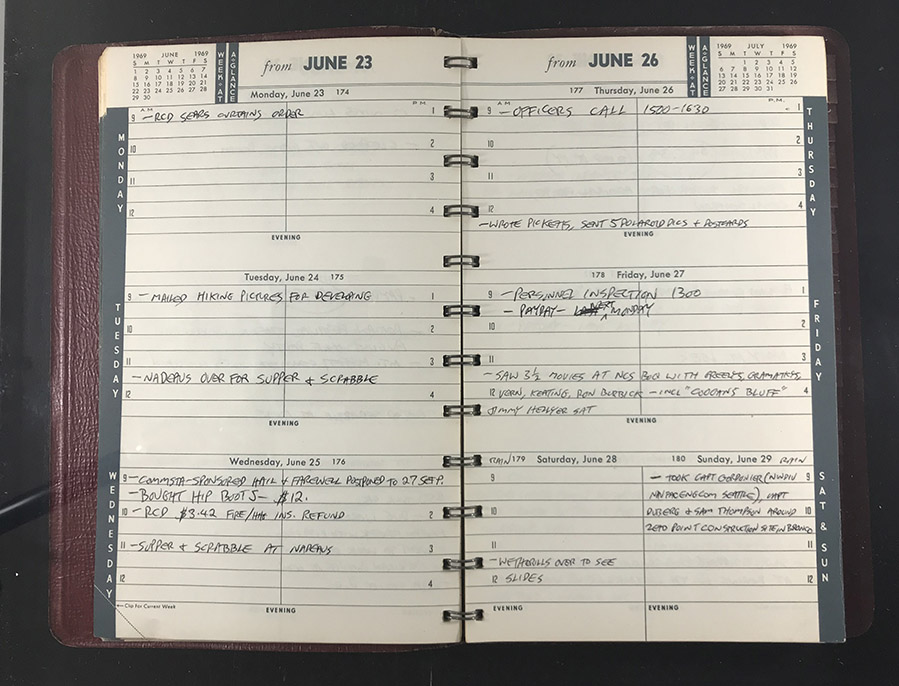 1969 JUNE 1969
S M T W T F S
1 2 3 4 5 6 7
8 9 10 11 12 13 14
15 16 17 18 19 20 21
22 23 24 25 26 27 28
29 30
WEEK-AT
A-GLANCE
from JUNE 23
Monday, June 23 174
MONDAY
A.M. P.M.
9 - RCD SEARS CURTAINS ORDER 1
10 2
11 3
12 4
EVENING
Tuesday, June 24 175
TUESDAY
9 - MAILED HIKING PICTURES FOR DEVELOPING 1
10 2
11 3
- NADEAUS OVER FOR SUPPER & SCRABBLE
12 4
EVENING
Wednesday, June 25 176
WEDNESDAY
9 - COMMSTA-SPONSORED HAIL & FAREWELL POSTPONED TO 27 SEP.
- BOUGHT HIP BOOTS - $12.
10 - RCD $3.42 FIRE/ INS. REFUND 2
11 - SUPPER & SCRABBLE AT NADEAUS 3
12 4
Clip For Current Week
EVENING
from JUNE 26
WEEK-AT
A-GLANCE
1969 JULY 1969
S M T W T F S
1 2 3 4 5
6 7 8 9 10 11 12
13 14 15 16 17 18 19
20 21 22 23 24 25 26
27 28 29 30 31
177 Thursday, June 26
THURSDAY
A.M. P.M.
9 - OFFICERS CALL 1520-1630 1
10 2
11 3
12 4
- WROTE PICKETTS, SENT 5 POLAROID PICS + POSTCARDS
EVENING
178 Friday, June 27
FRIDAY
9 - PERSONNEL INSPECTION 1300 1
- PAYDAY - NEXT MONDAY
10 2
11 3
- SAW 3 1/2 MOVIES AT NCS BOQ WITH
12 VERN, KEATING, RON - INCL "COOGAN'S BLUFF" 4
JIMMY SAT
EVENING
RAIN 179 Saturday, June 28
9
10
11
- WETHERILLS OVER TO SEE
12 SLIDES
EVENING
180 Sunday, June 29 RAIN
SAT & SUN
- TOOK CAPT (NWDIV 9
NAVFACENGCOM SEATTLE), CAPT
& SAM THOMPSON AROUND 10
ZERO POINT CONSTRUCTION SITE IN BRONCO
11
12
EVENING